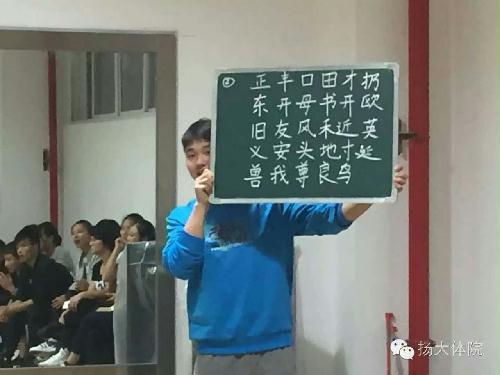 ② 正丰口田才扔
东开母书开欧
旧友风禾近英
义安头地寸延
兽我尊良鸟
扬大体院